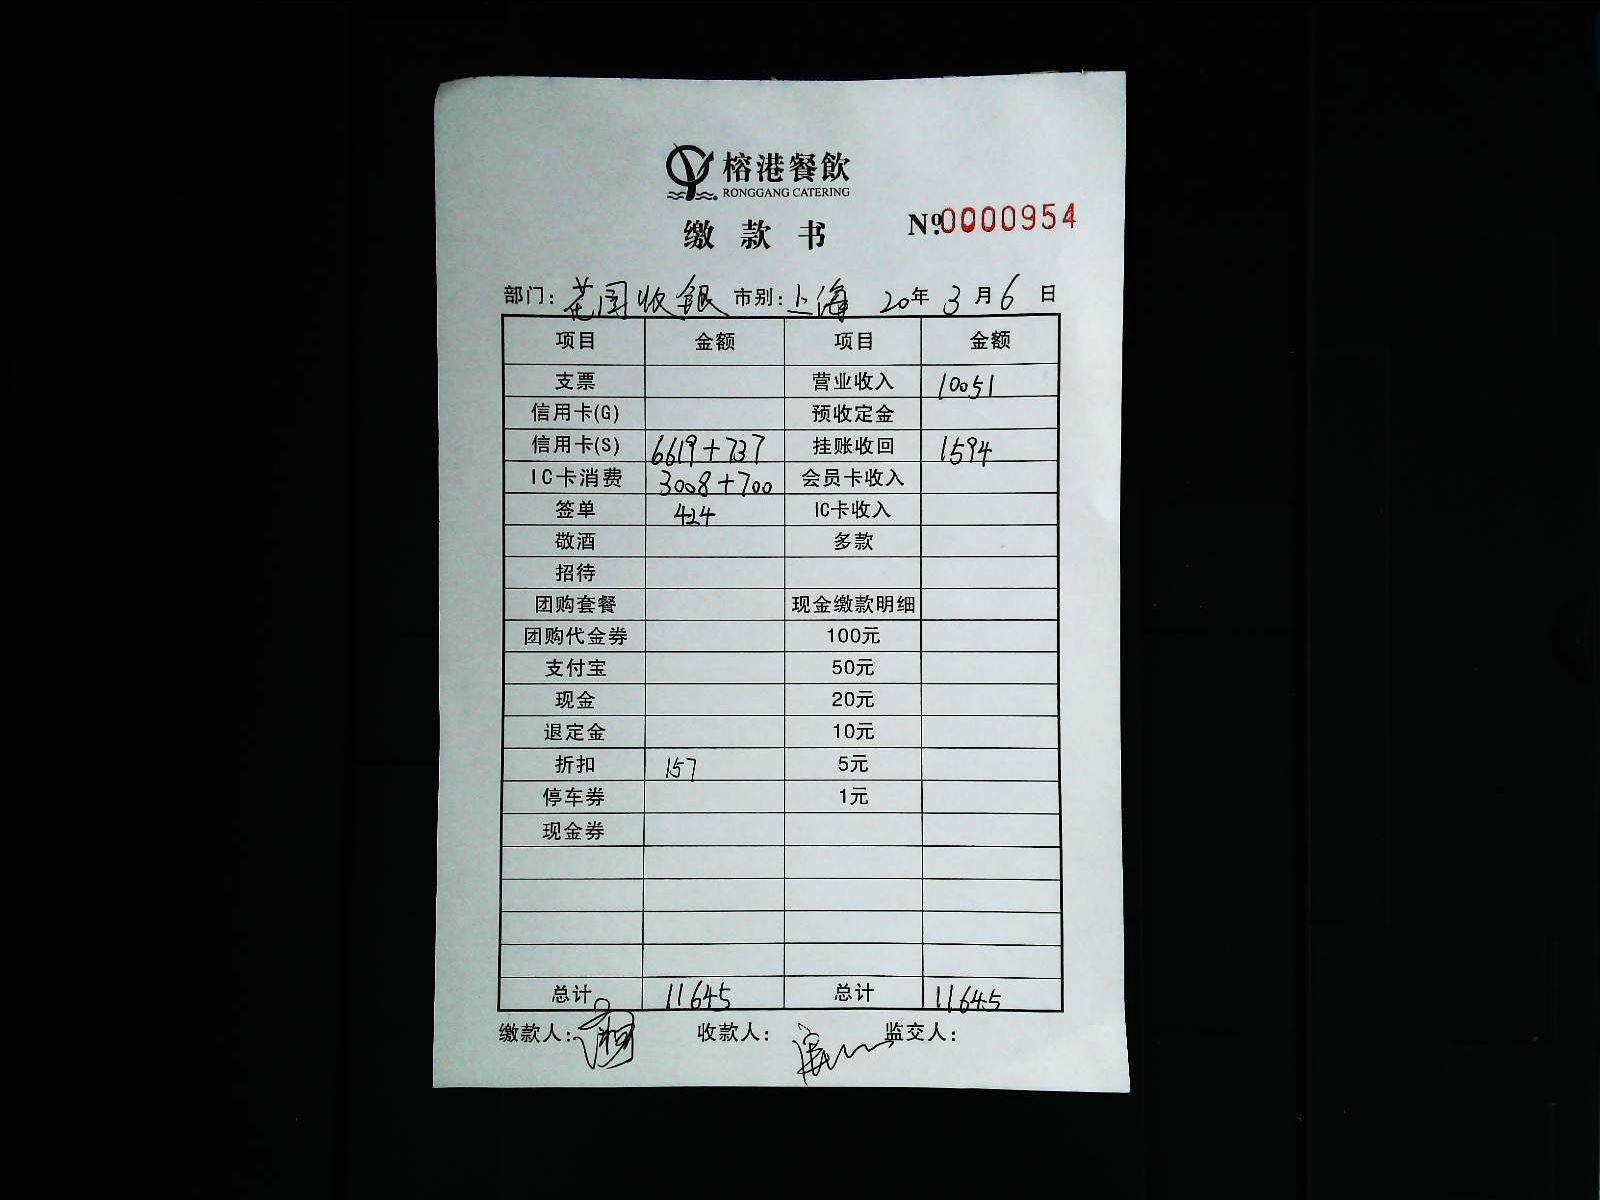 榕港餐飲
RONGGANG CATERING
缴款书
№.0000954
部门：花园收银 市别：上海 20年 3月6日
项目 金额 项目 金额
支票 营业收入 10051
信用卡(G) 预收定金
信用卡(S) 6619+737 挂账收回 1594
IC卡消费 3008+700 会员卡收入
签单 424 IC卡收入
敬酒 多款
招待
团购套餐 现金缴款明细
团购代金券 100元
支付宝 50元
现金 20元
退定金 10元
折扣 157 5元
停车券 1元
现金券
总计 11645 总计 11645
缴款人： 收款人： 监交人：